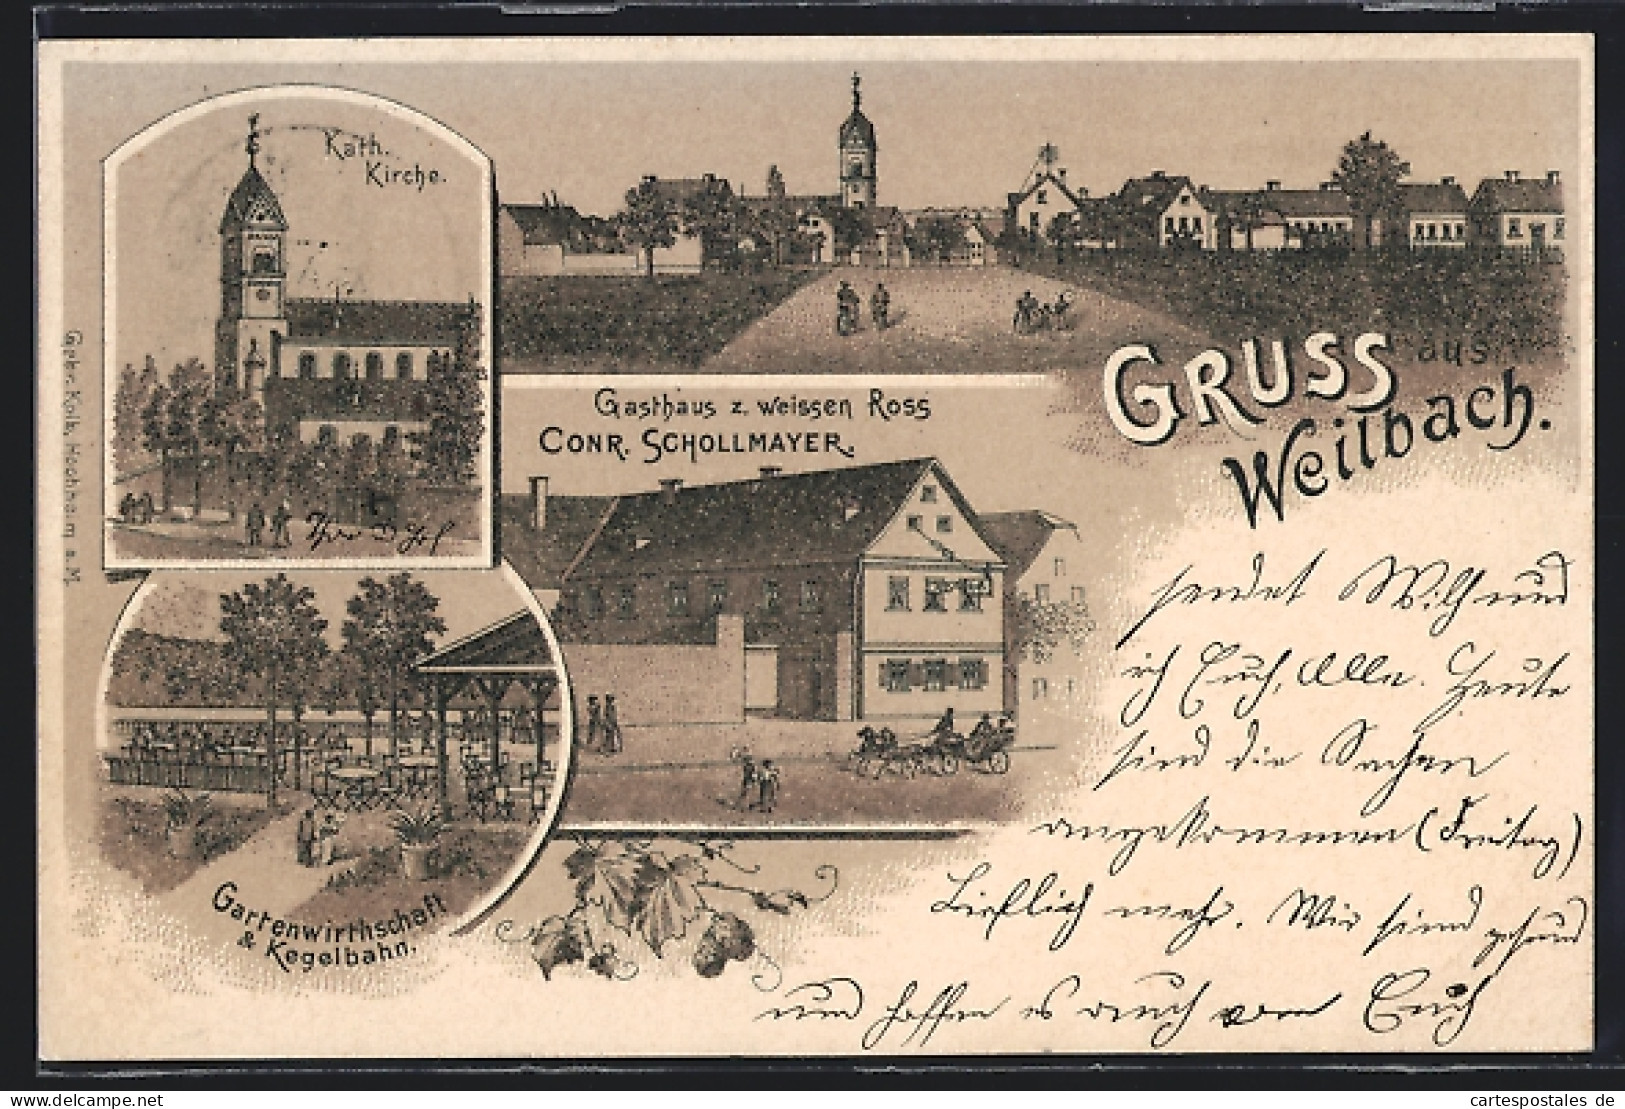 Kath.
Kirche.
GRUSS aus
Weilbach.
Gasthaus z. weissen Ross
CONR. SCHOLLMAYER.
Gartenwirthschaft
& Kegelbahn.
Gebr. Kolb, Hochheim a. M.
sendet und
ich Euch, Alle. Heute
sind die Sachen
angekommen (Freitag)
mehr. Wir sind gesund
und hoffen es auch von Euch
www.cartespostales.com
cartespostales de